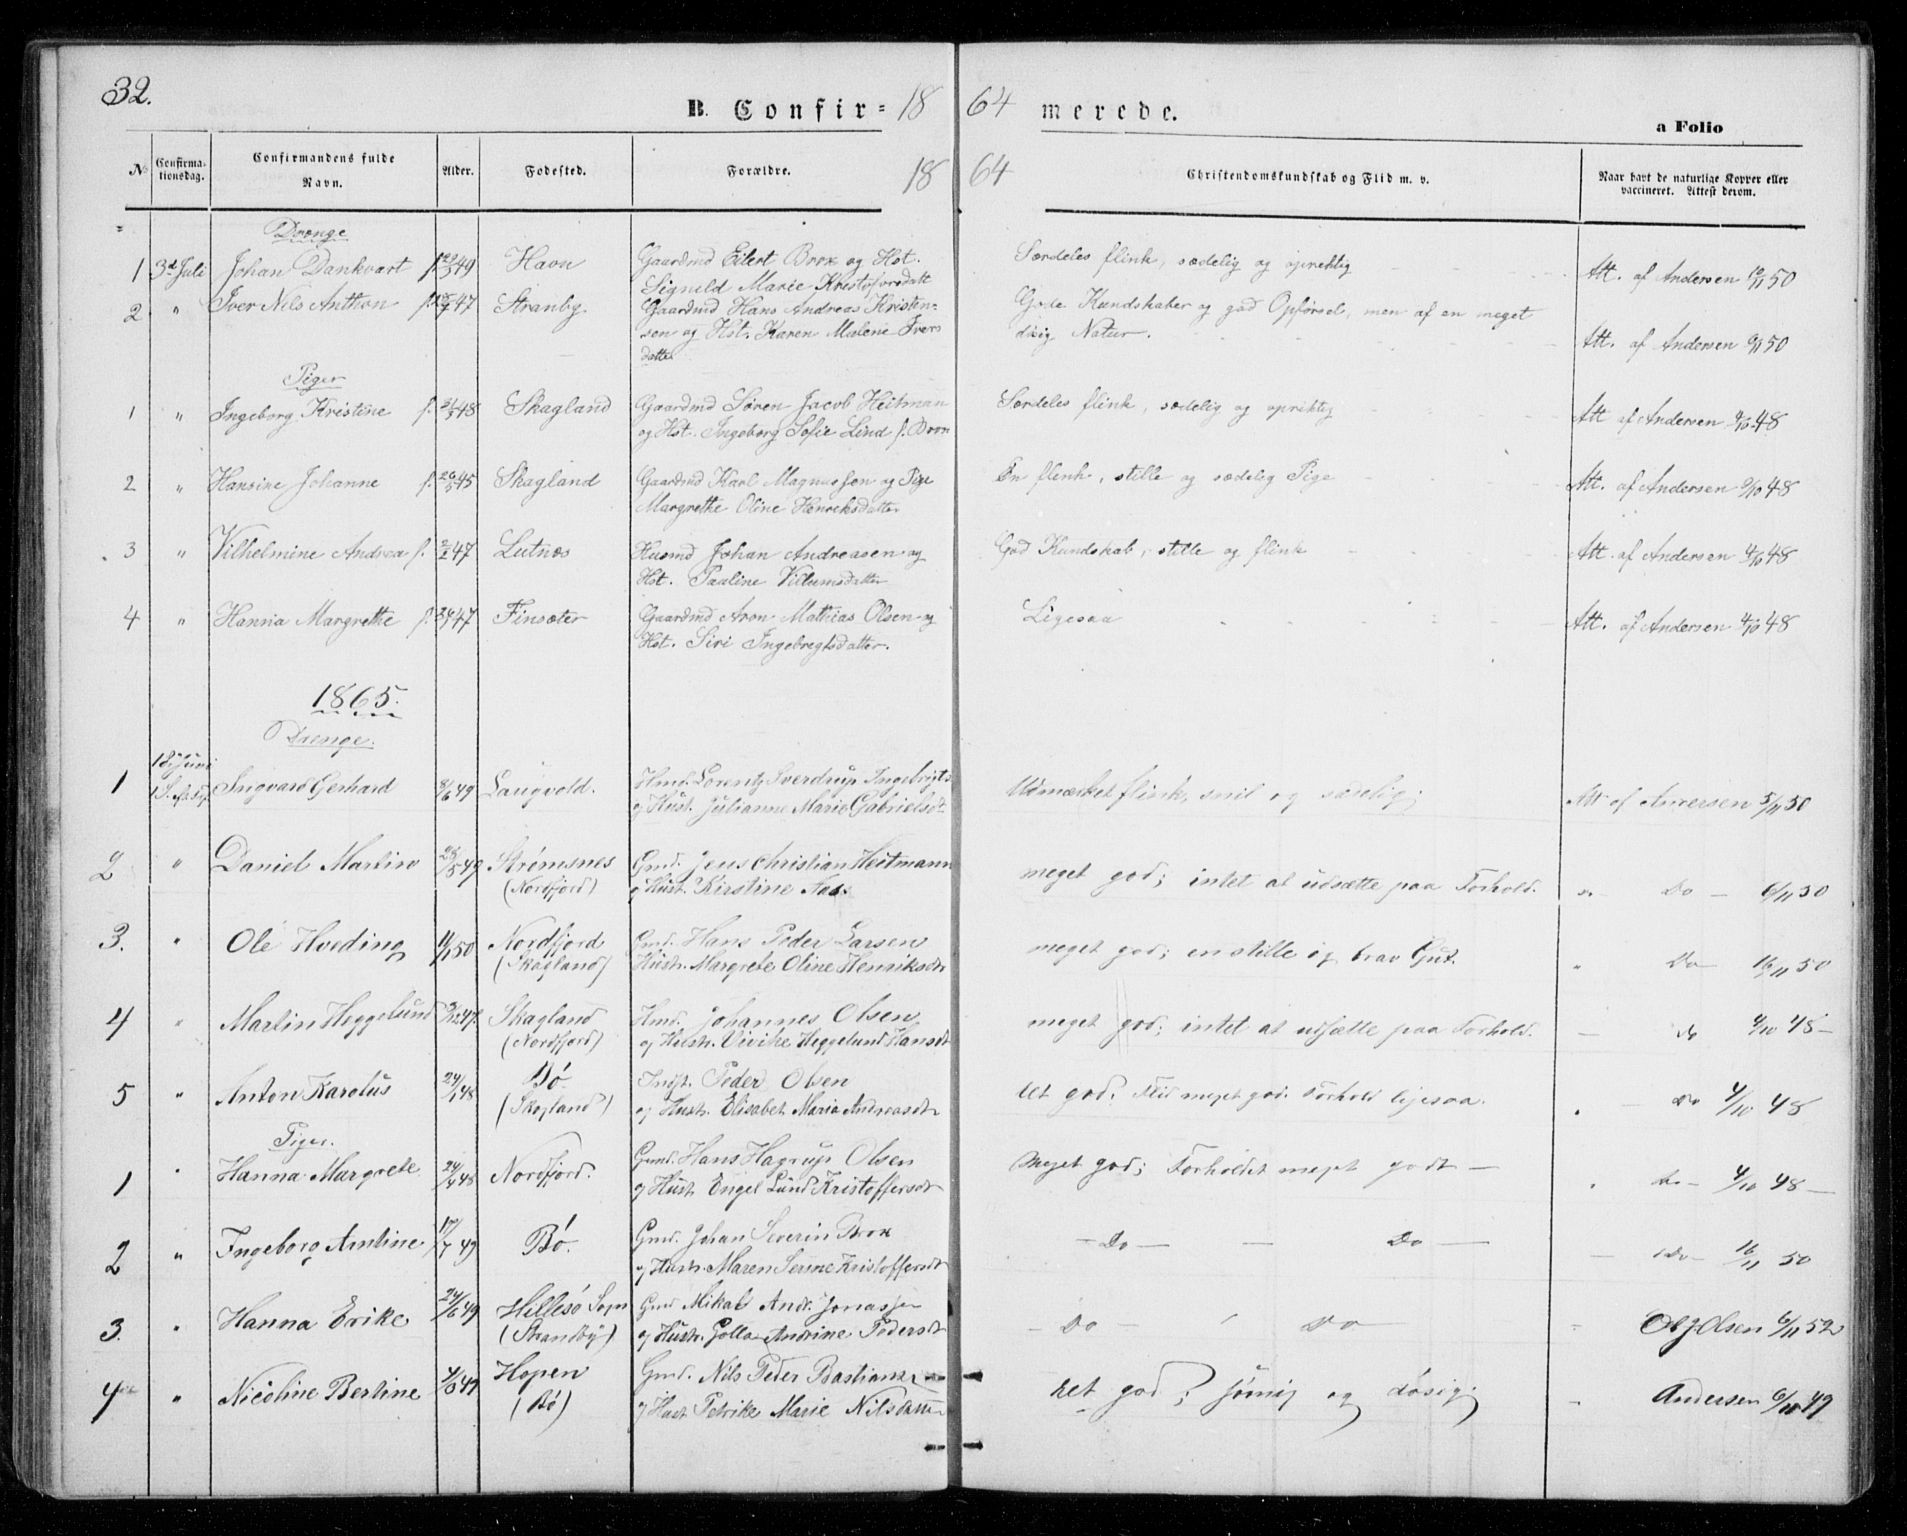 32.
B. Confir = 18 64 merede.
a Folio
No Confirma-tionsdag. Confirmandens fulde Navn. Alder. Fødested. Forældre. 18 64 Christendomskundskab og Flid m. v. Naar havt de naturlige Kopper eller vaccineret. Attest derom.
Drenge
1 3d Juli Johan Dankvart f. 49 Havn Gaardmd Eilert Brox og Hst. Særdeles flink, sædelig og oprigtig
Signeld Marie Kristofersdatt Att. af Andersen 50
2 " Iver Nils Anthon f. 47 Stranby Gaardmd Hans Andreas Kristen= Gode Kundskaber og god Opførsel, men af en meget
sen og Hst. Karen Malene Ivers døsig Natur. Att. af Andersen 6/11 50
datter
Piger
1 " Ingeborg Kristine f. 48 Skagland Gaardmd Søren Jacob Heitman Særdeles flink, sædelig og oprigtig
og Hst. Ingeborg Sofie Lind f. Brox Att af Andersen 4/10 48
2 " Hansine Johanne f. 45 Skagland Gaardmd Karl Magnussen og Pige En flink, stille og sædelig Pige
Margrethe Oline Henriksdatter Att. af Andersen 48
3 " Vilhelmine Andrea f. 47 Lutnæs Husmd Johan Andreasen og God Kundskab, stille og flink
Hst. Pauline Villumsdatter Att. af Andersen 4/10 48
4 " Hanna Margrethe f. 47 Finsæter Gaardmd Aron Mathias Olsen og Ligesaa
Hst. Siri Ingebregtsdatter. Att. af Andersen 4/10 48
1865.
Drenge.
18 Juni
1 Ingvard Gerhard 8/6 49 Laugvold. Hmd. Lorentz Sverdrup Ingebrigts
og Hust. Julianne Marie Gabrielsdt Udmærket flink, snil og sædelig; Att af Andersen 5/11 50
2 " Daniel Martin 49 Strømsnes Gmd. Jens Christian Heitmann
(Nordfjord) og Hust. Kirstine Aas. meget god; intet at udsætte paa Forhold. " Do — 6/11 50
3. " Ole Hveding 50 Nordfjord Gmd. Hans Peder Larsen
(Skagland) Hustr. Margrete Oline Henriksdt meget god; en stille og brav Gut. " Do 16/11 50
4 " Martin Heggelund 47. Skagland Hmd. Johannes Olsen
(Nordfjord) og Hustr. Vivike Heggelund Hansdt meget god; intet at udsætte paa Forhold. — do 4/10 48 —
5 " Anton Karolus 24/ 48 Bø. Indst. Peder Olsen
(Skagland) og Hustr. Elisabet Maria Andreasdt det god. Flid meget god. Forhold ligesaa. " Do 4/10 48
Piger.
1 " Hanna Margrete 24/ 48 Nordfjord. Gmd. Hans Hagrup Olsen
og Hust. Engel Lund Kristoffersdt Meget god; Forholdet meget godt — " Do — 4/10 48 —
2 " Ingeborg Antine 17/7 49 Bø. Gmd. Johan Severin Brox
og Hustr. Maren Serine Kristoffersdt — Do — — Do — — Do — 16/11 50
3. " Hanna Erike 24/6 49 Hillesø Sogn Gmd Mikal Andr. Jonassen
(Stranby) og Hustr. Golla Andrine Pedersdt — Do — Do — Ol J Olsen 6/11 52
4 " Nicoline Bertine 49 Hopen Gmd. Nils Peder Bastians
(Bø) og Hust Petrike Marie Nilsdatter det god; sømig og døsig; Andersen 49